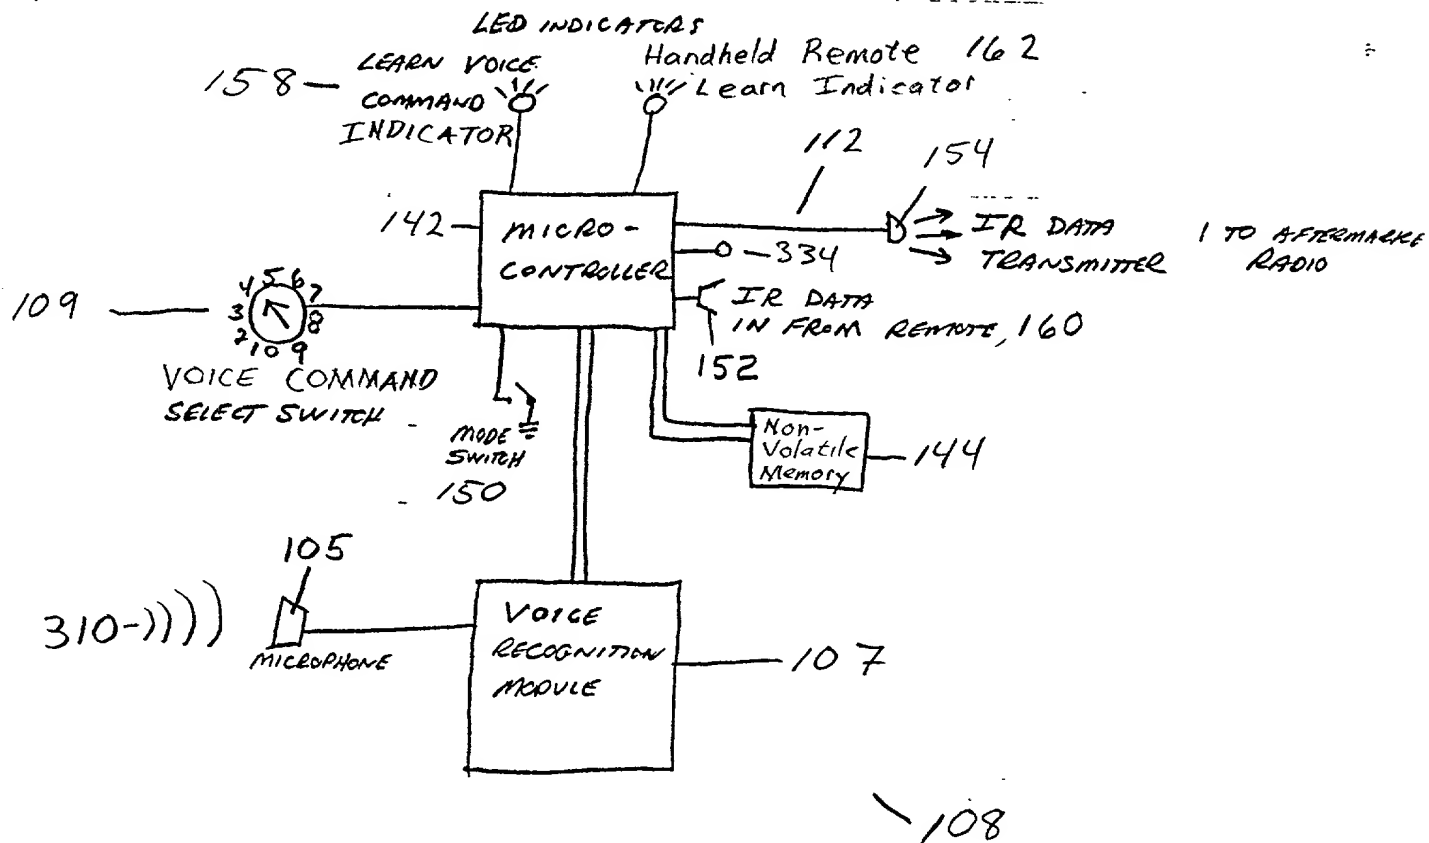 LED INDICATORS
158 LEARN VOICE
COMMAND
INDICATOR
Handheld Remote 162
Learn Indicator
112
154
142
MICRO-
CONTROLLER
334
IR DATA
TRANSMITTER
1 TO AFTERMARKE
RADIO
IR DATA
IN FROM REMOTE, 160
152
109
2 3 4 5 6 7 8 9 10
VOICE COMMAND
SELECT SWITCH
MODE
SWITCH
150
Non-
Volatile
Memory
144
105
310
MICROPHONE
VOICE
RECOGNITION
MODULE
107
108